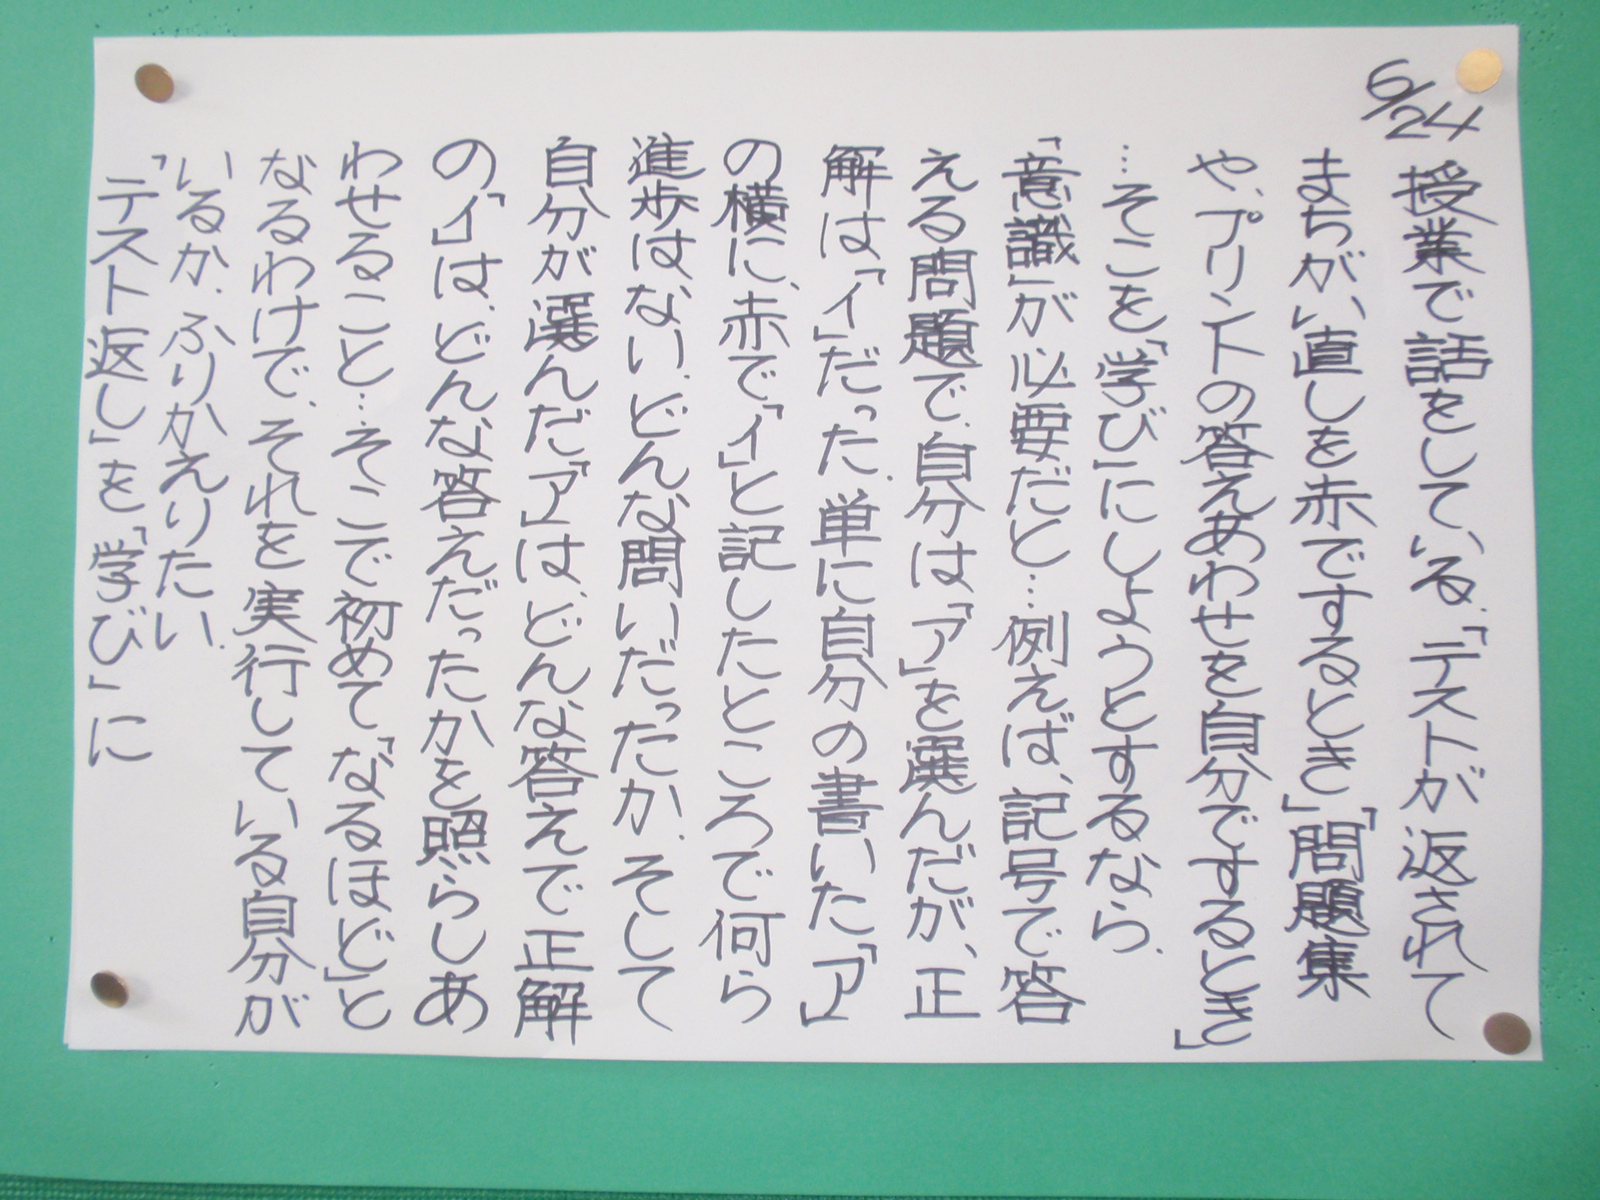 6/24
授業で話をしている.「テストが返されて
まちがい直しを赤でするとき」「問題集
や、プリントの答えあわせを自分でするとき」
…そこを「学び」にしようとするなら.
「意識」が必要だと…例えば、記号で答
える問題で、自分は「ア」を選んだが、正
解は「イ」だった.単に自分の書いた「ア」
の横に、赤で「イ」と記したところで何ら
進歩はない.どんな問いだったか.そして
自分が選んだ「ア」は、どんな答えで正解
の「イ」は、どんな答えだったかを照らしあ
わせること…そこで初めて「なるほど」と
なるわけで、それを実行している自分が
いるか.ふりかえりたい.
「テスト返し」を「学び」に